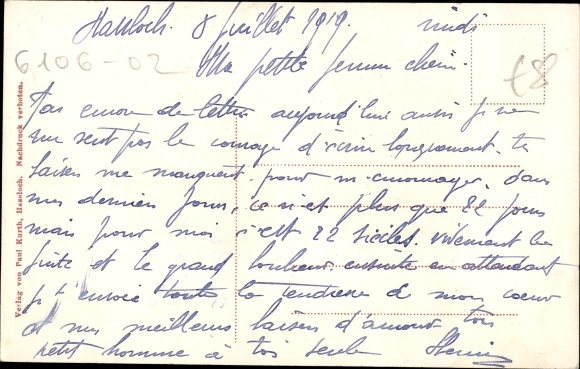 Hassloch. 8 juillet 1919. midi
6106-02
Ma petite femme chérie.
f8
Pas encore de lettre aujourd'hui aussi je ne
me sent pas le courage d'écrire longuement. tes
baisers me manquent pour m'encourager. dans
mes derniers jours, ce n'est plus que 22 jours
mais pour moi c'est 22 siècles. vivement la
fuite et le grand bonheur ensuite en attendant
je t'envoie toute la tendresse de mon coeur
et mes meilleurs baisers d'amour ton
petit homme à toi seule Henri
Verlag von Paul Kurth, Hassloch. Nachdruck verboten.